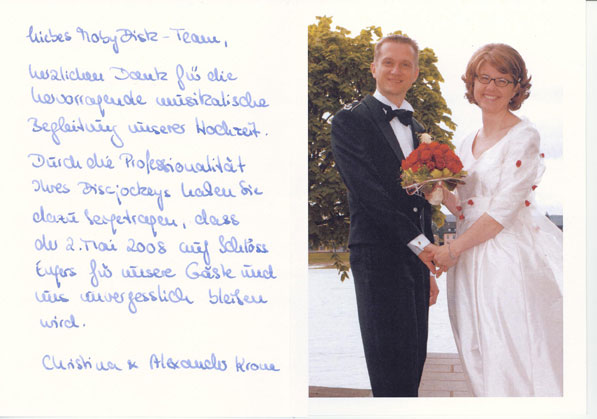 Liebes MobyDisk-Team,
herzlichen Dank für die
hervorragende musikalische
Begleitung unserer Hochzeit.
Durch die Professionalität
Ihres Discjockeys haben Sie
dazu beigetragen, dass
der 2. Mai 2008 auf Schloss
Engers für unsere Gäste und
uns unvergesslich bleiben
wird.
Christina & Alexander